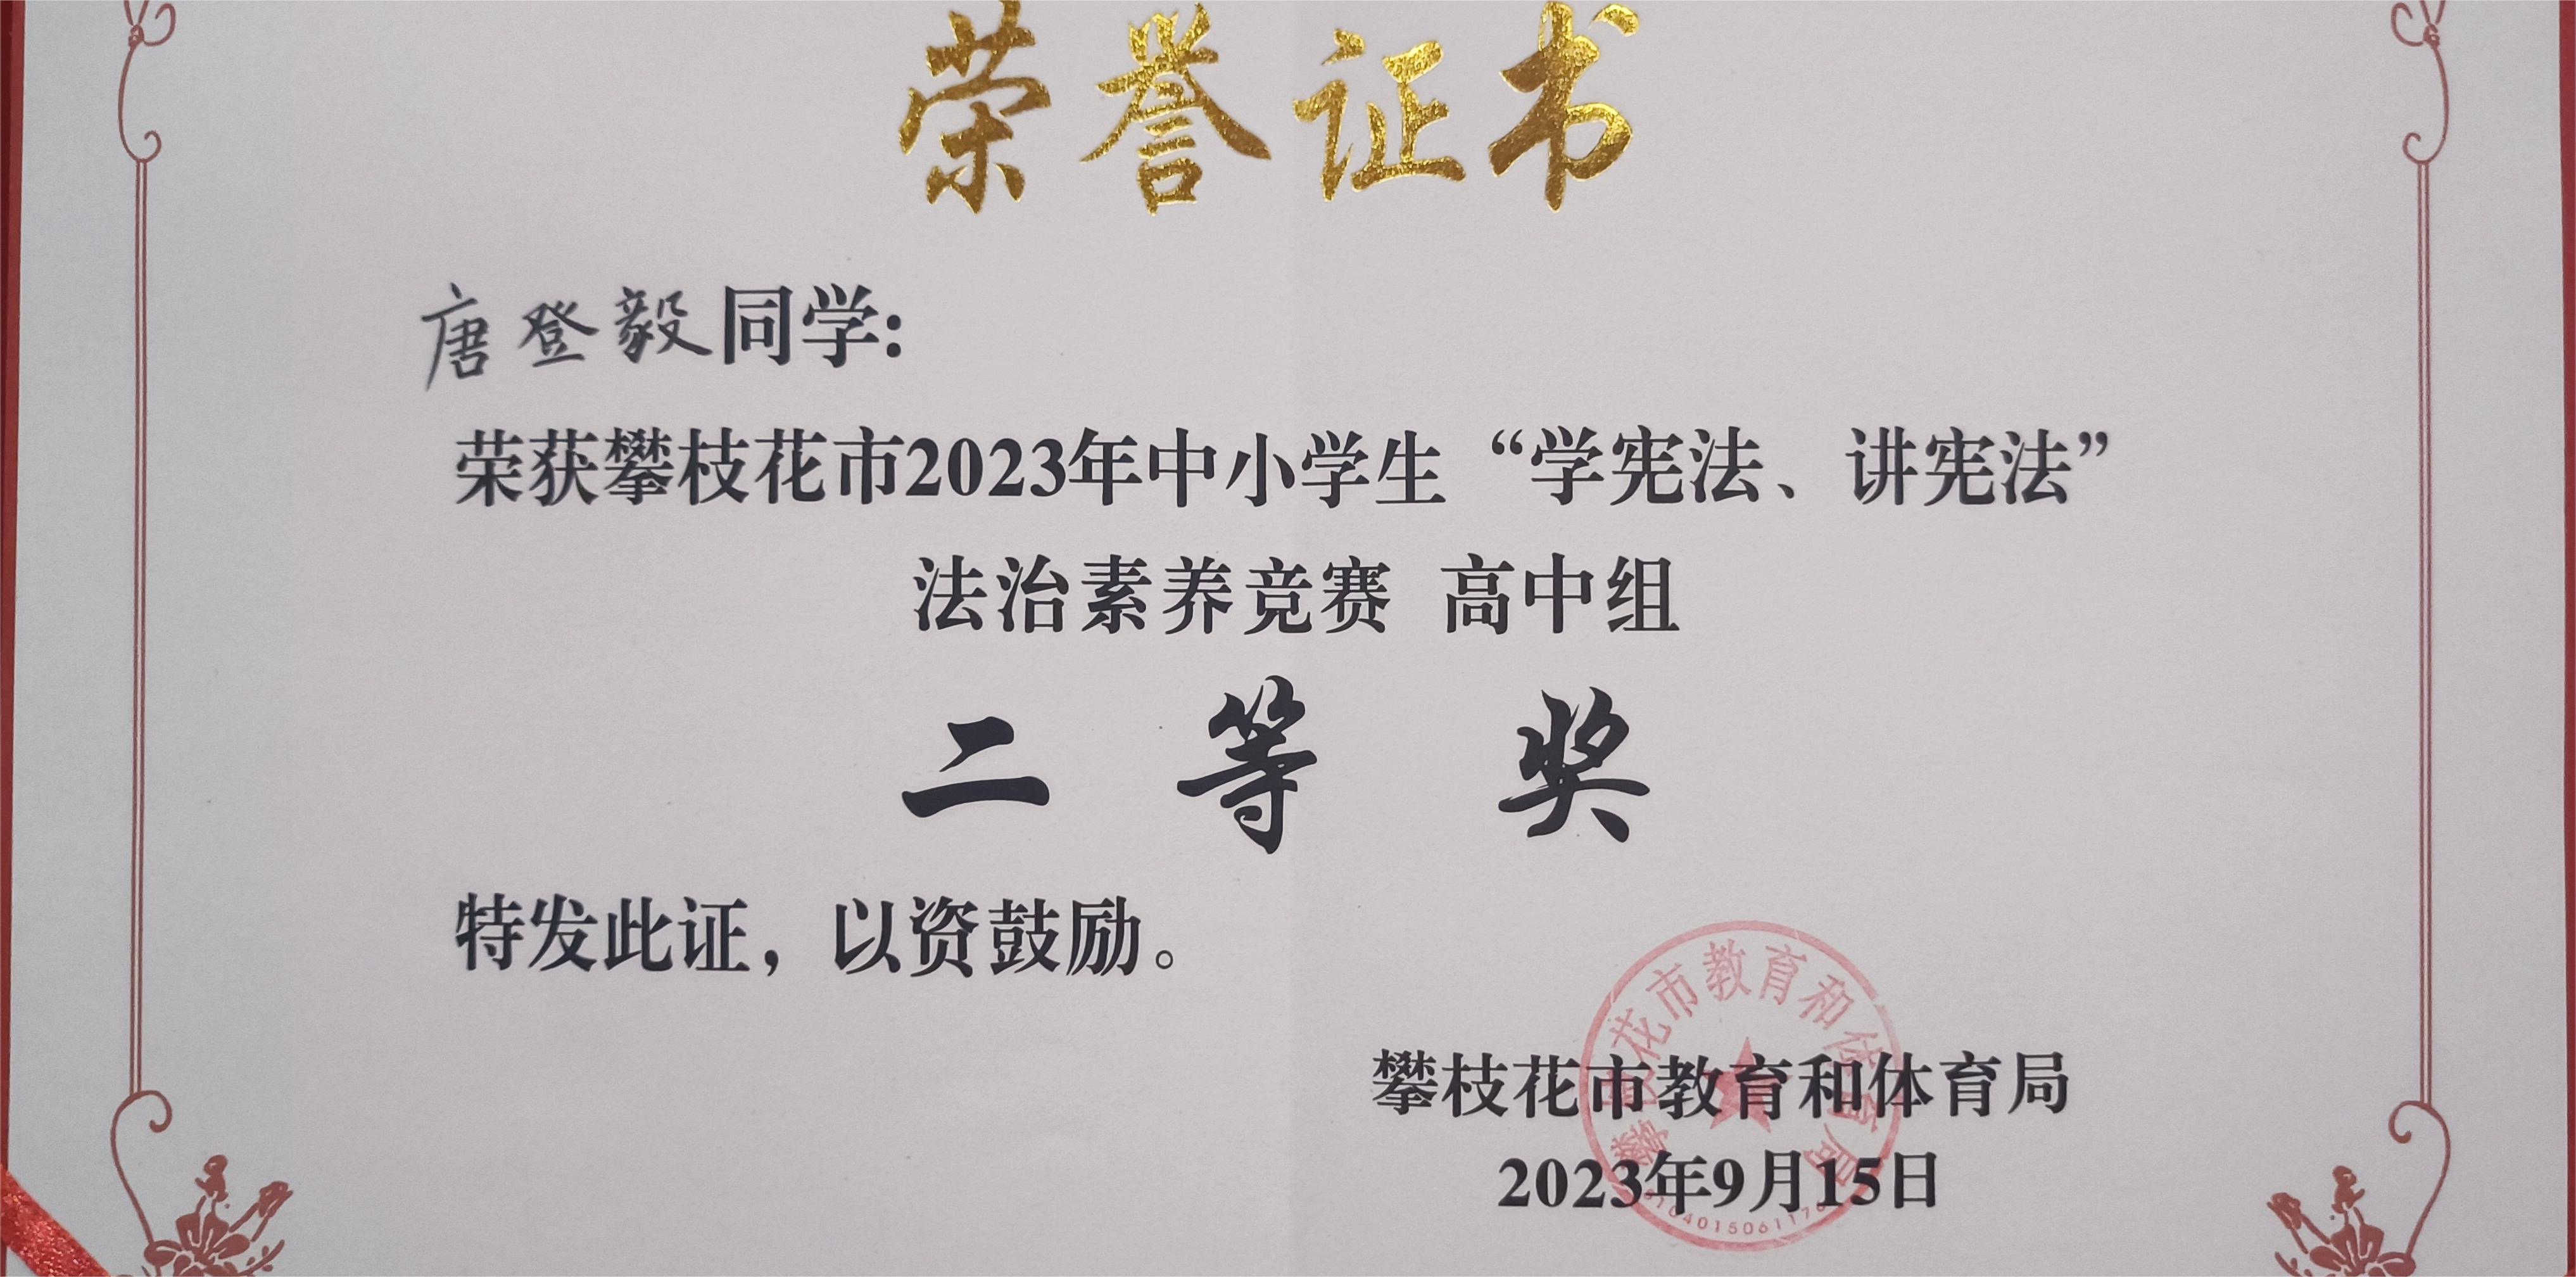 荣誉证书
唐登毅同学:
荣获攀枝花市2023年中小学生“学宪法、讲宪法”
法治素养竞赛 高中组
二等奖
特发此证，以资鼓励。
攀枝花市教育和体育局
2023年9月15日
攀枝花市教育和体育局